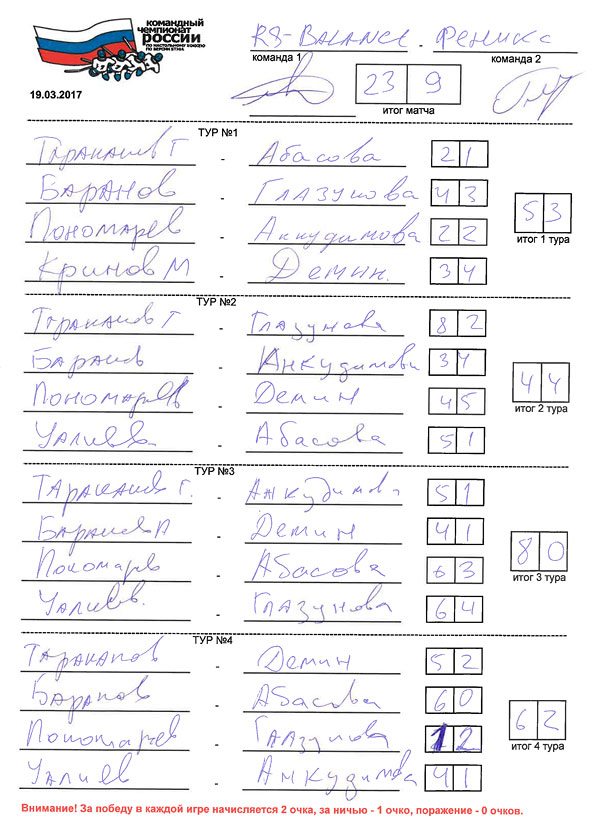 КОМАНДНЫЙ
ЧЕМПИОНАТ
РОССИИ
ПО НАСТОЛЬНОМУ ХОККЕЮ
ПО ВЕРСИИ STIGA
19.03.2017
RS-BALANCE - Феникс
команда 1 команда 2
23 9
итог матча
ТУР №1
Тараканов Г - Абасова 2 1
Баранов - Глазунова 4 3
Пономарев - Анкудимова 2 2
Кринов М - Демин. 3 4
5 3
итог 1 тура
ТУР №2
Тараканов Г - Глазунова 8 2
Баранов - Анкудимова 3 4
Пономарев - Демин 4 5
Уалиев - Абасова 5 1
4 4
итог 2 тура
ТУР №3
Тараканов Г. - Анкудимова 5 1
Баранов А - Демин 4 1
Пономарев - Абасова 6 3
Уалиев. - Глазунова 6 4
8 0
итог 3 тура
ТУР №4
Тараканов - Демин 5 2
Баранов - Абасова 6 0
Пономарев - Глазунова 1 2
Уалиев - Анкудимова 4 1
6 2
итог 4 тура
Внимание! За победу в каждой игре начисляется 2 очка, за ничью - 1 очко, поражение - 0 очков.